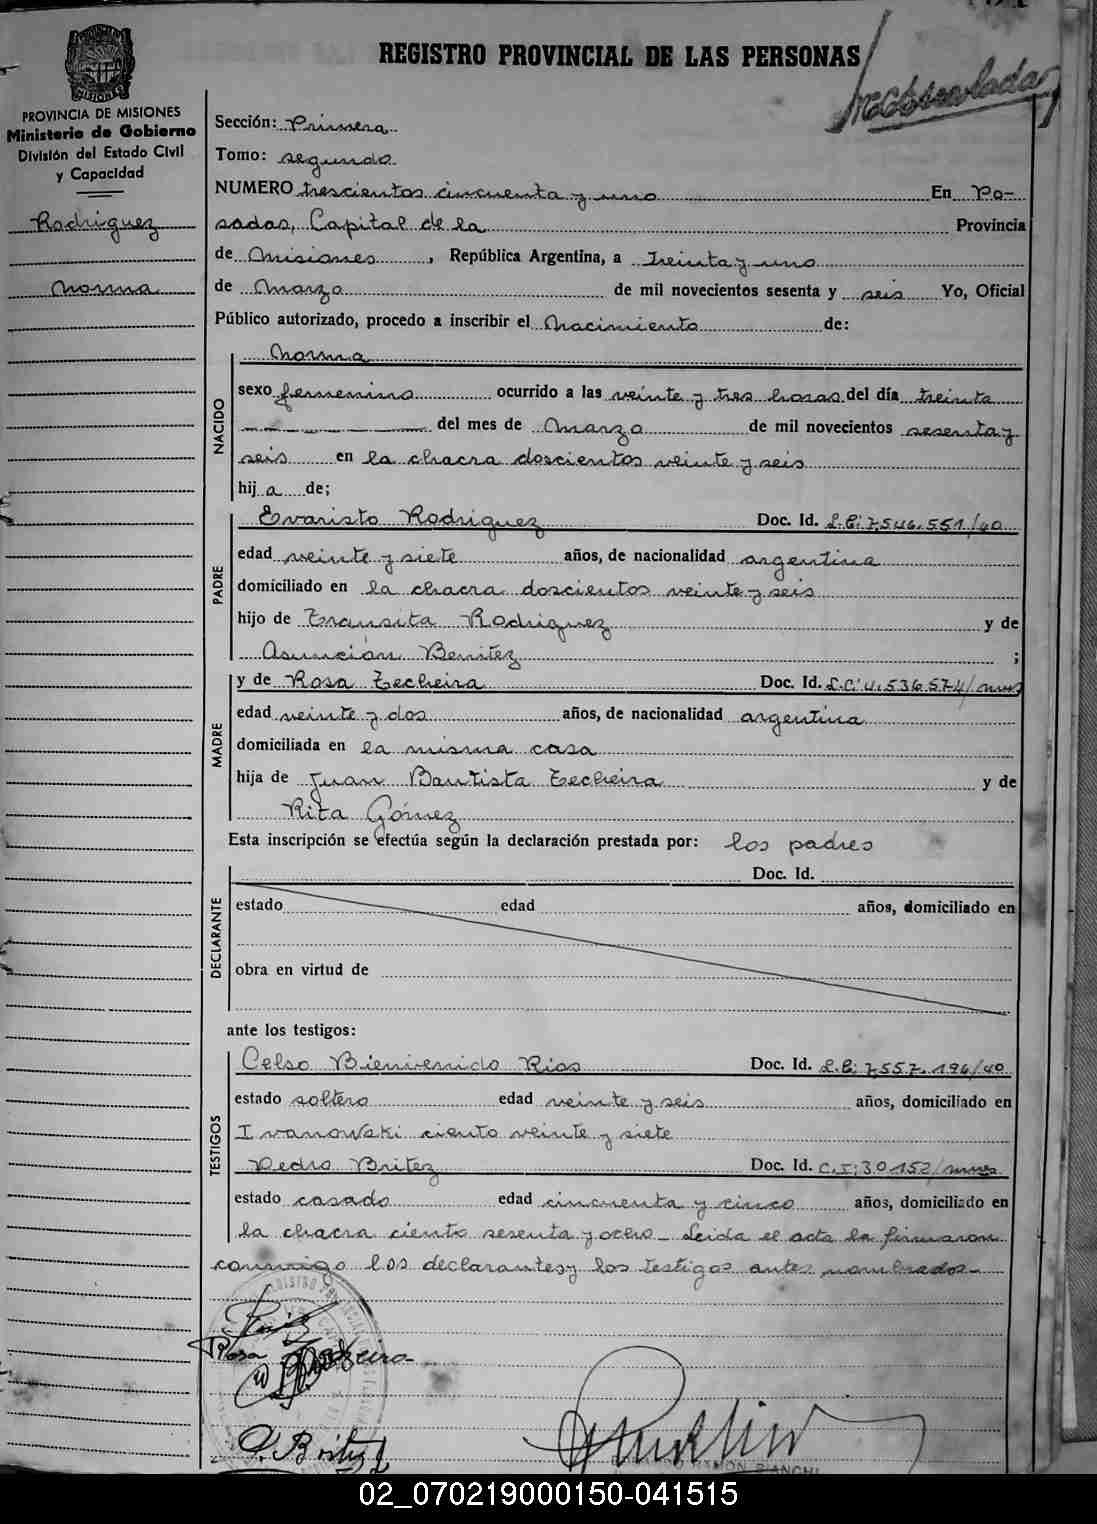 REGISTRO PROVINCIAL DE LAS PERSONAS
PROVINCIA DE MISIONES
Ministerio de Gobierno
División del Estado Civil
y Capacidad
Rodriguez
Norma
Sección: Primera
Tomo: segundo
NUMERO trescientos cincuenta y uno En Po-
sadas, Capital de la Provincia
de Misiones, República Argentina, a treinta y uno
de Marzo de mil novecientos sesenta y seis Yo, Oficial
Público autorizado, procedo a inscribir el Nacimiento de:
NACIDO
Norma
sexo femenino ocurrido a las veinte y tres horas del día treinta
del mes de Marzo de mil novecientos sesenta y
seis en la chacra doscientos veinte y seis
hij a de;
PADRE
Evaristo Rodriguez Doc. Id. L.E: 7.546.551/40
edad veinte y siete años, de nacionalidad argentina
domiciliado en la chacra doscientos veinte y seis
hijo de Transita Rodriguez y de
Asunción Benitez ;
MADRE
y de Rosa Techeira Doc. Id. L.C: 4.536.574/mnes
edad veinte y dos años, de nacionalidad argentina
domiciliada en la misma casa
hija de Juan Bautista Techeira y de
Rita Gómez
Esta inscripción se efectúa según la declaración prestada por: los padres
DECLARANTE
Doc. Id.
estado edad años, domiciliado en
obra en virtud de
ante los testigos:
TESTIGOS
Celso Bienvenido Rios Doc. Id. L.E: 7.557.196/40
estado soltero edad veinte y seis años, domiciliado en
Ivanowski ciento veinte y siete
Pedro Britez Doc. Id. C.I: 30.152/mnes
estado casado edad cincuenta y cinco años, domiciliado en
la chacra ciento sesenta y ocho - Leida el acta la firmaron
conmigo los declarantes y los testigos antes nombrados-
Rosa
P. Britez
RAMON BIANCHI
02_070219000150-041515